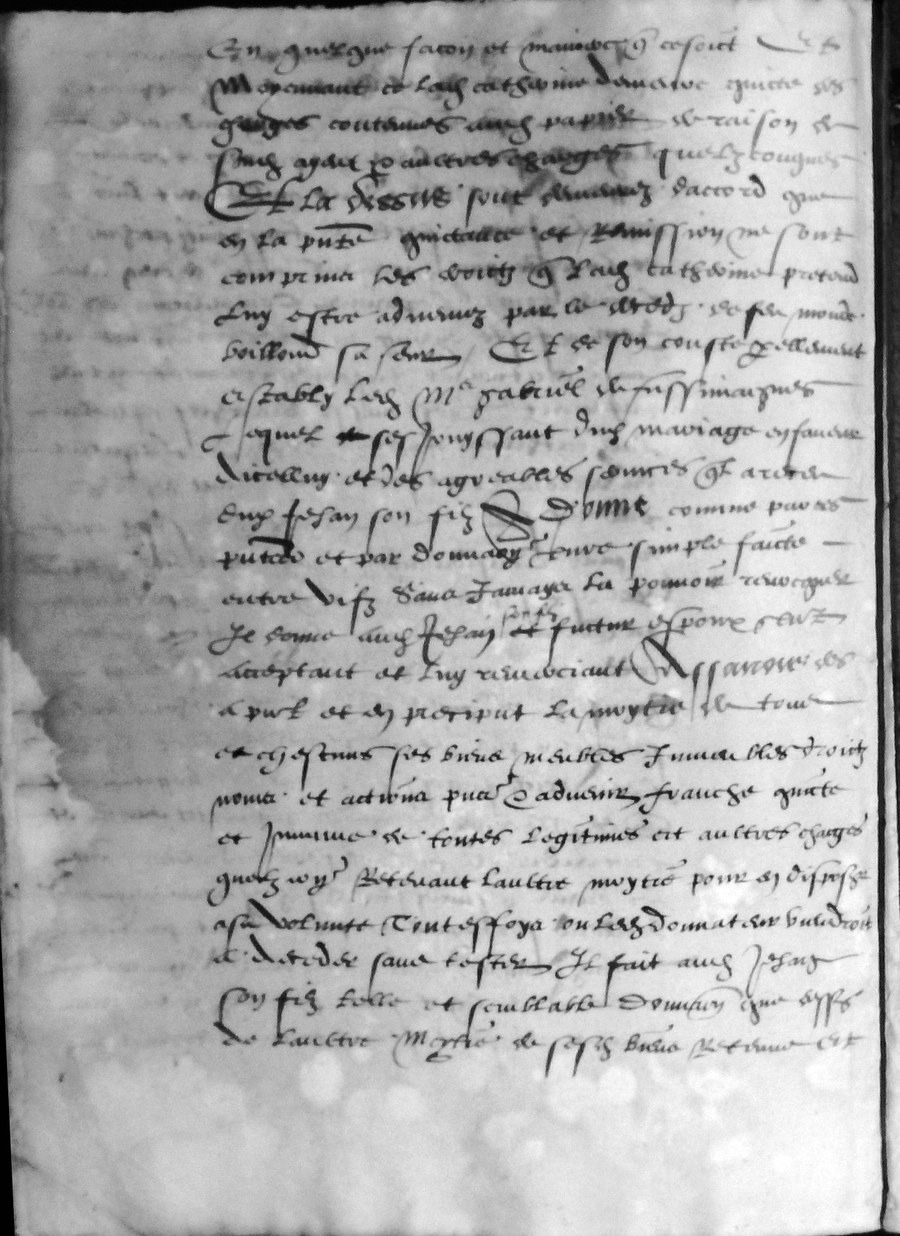 En quelque facon et maniere q cesoict Et
Moyennant ce lad catherine demeure quicte des
gaiges contenues aud papier de raison de
sond ayeul & aultres charges quelzconques
Et la dessus sont demeurez daccord que
en la pnte quictance et Remission ne sont
comprins les droictz q lad catherine pretend
luy estre advenuz par le deces de feu
boillond sa seur Et de son couste pellement
estably led Me gabriel de fussimaignes
lequel sesjouyssant dud mariage enfaveur
dicelluy et des agreables services ql a
dud Jehan son filz A Donne comme par ces
pntes et par donnaon pure simple faicte
entre vifz sans Jamays la pouvoir revocquer
Il donne aud Jehan son filz et futur espoux
acceptant et luy remerciant Assavoir
a part et en preciput la moytie de tous
et chescuns ses biens meubles Immeubles droictz
noms et actions pns & advenir franche quicte
et Immune de toutes legitimes et aultres charges
quelzcoqs Retenant laultre moytie pour en disposer
asa volunte Toutesfoys ou led donnateur viendroit
a deceder sans tester Il fait aud Jehan
son filz telle et semblable donnaon que dess
de laultre moytie de sesd biens Retenue et